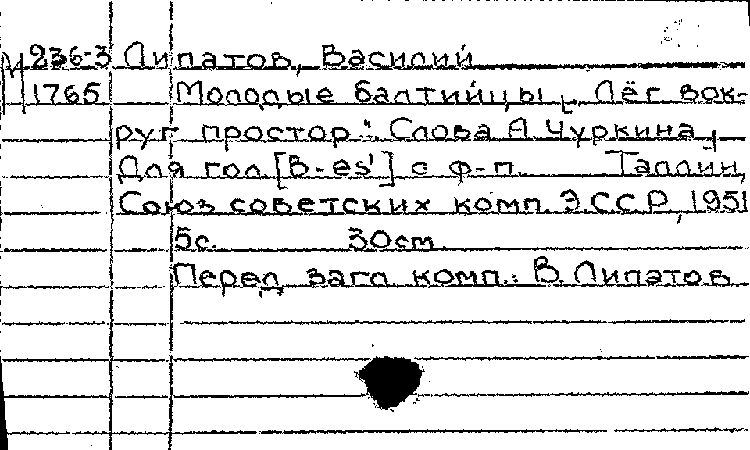 М 236-3 Липатов, Василий
1765 Молодые балтийцы „Лёг вок-
руг простор". Слова А. Чуркина.
Для гол [B-es¹] с ф-п. Таллин,
Союз советских комп. Э.С.С.Р, 1951
5с. 30см
Перед загл. комп.: В. Липатов